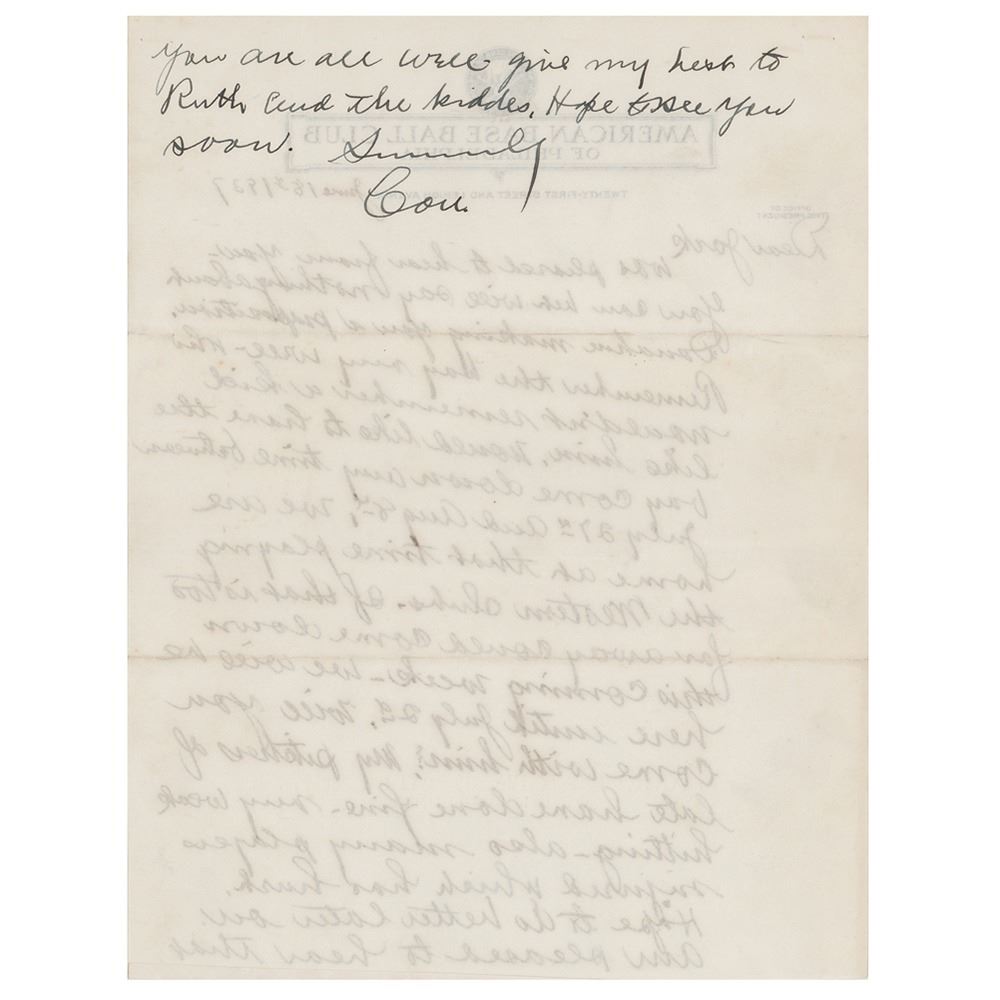 you are all well give my best to
Ruth and the kiddes. Hope to see you
soon. Sincerely
Con.
AMERICAN BASE BALL CLUB
OF PHILADELPHIA
TWENTY-FIRST STREET AND LEHIGH AVE
June 18th 1937
OFFICE OF
THE PRESIDENT
Dear Jack
Was pleased to hear from you.
You can bet will say nothing about
making you a proposition.
Remember the boy very well - who
wouldn't remember a kid
like him. Would like to have the
boy come down any time between
July 27th and Aug 8th, we are
home at that time playing
the Western clubs. If that is too
far away could come down
this coming week - we will be
here until July 22. Will you
come with him? My pitchers of
late have done fine - very weak
hitting - also many players
injured which has hurt.
Hope to do better later on.
Am pleased to hear that